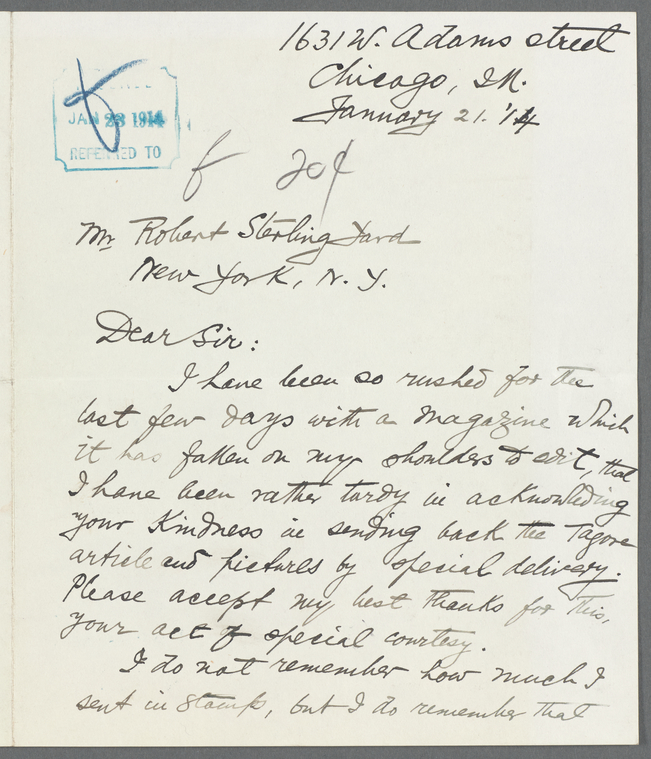 1631 W. Adams street
Chicago, Ill.
January 21. '14
JAN 23 1914
REFERRED TO
f 20¢
Mr Robert Sterling Yard
New York, N. Y.
Dear Sir:
I have been so rushed for the
last few days with a magazine which
it has fallen on my shoulders to edit, that
I have been rather tardy in acknowledging
your kindness in sending back the Tagore
article and pictures by special delivery.
Please accept my best thanks for this,
your act of special courtesy.
I do not remember how much I
sent in stamps, but I do remember that